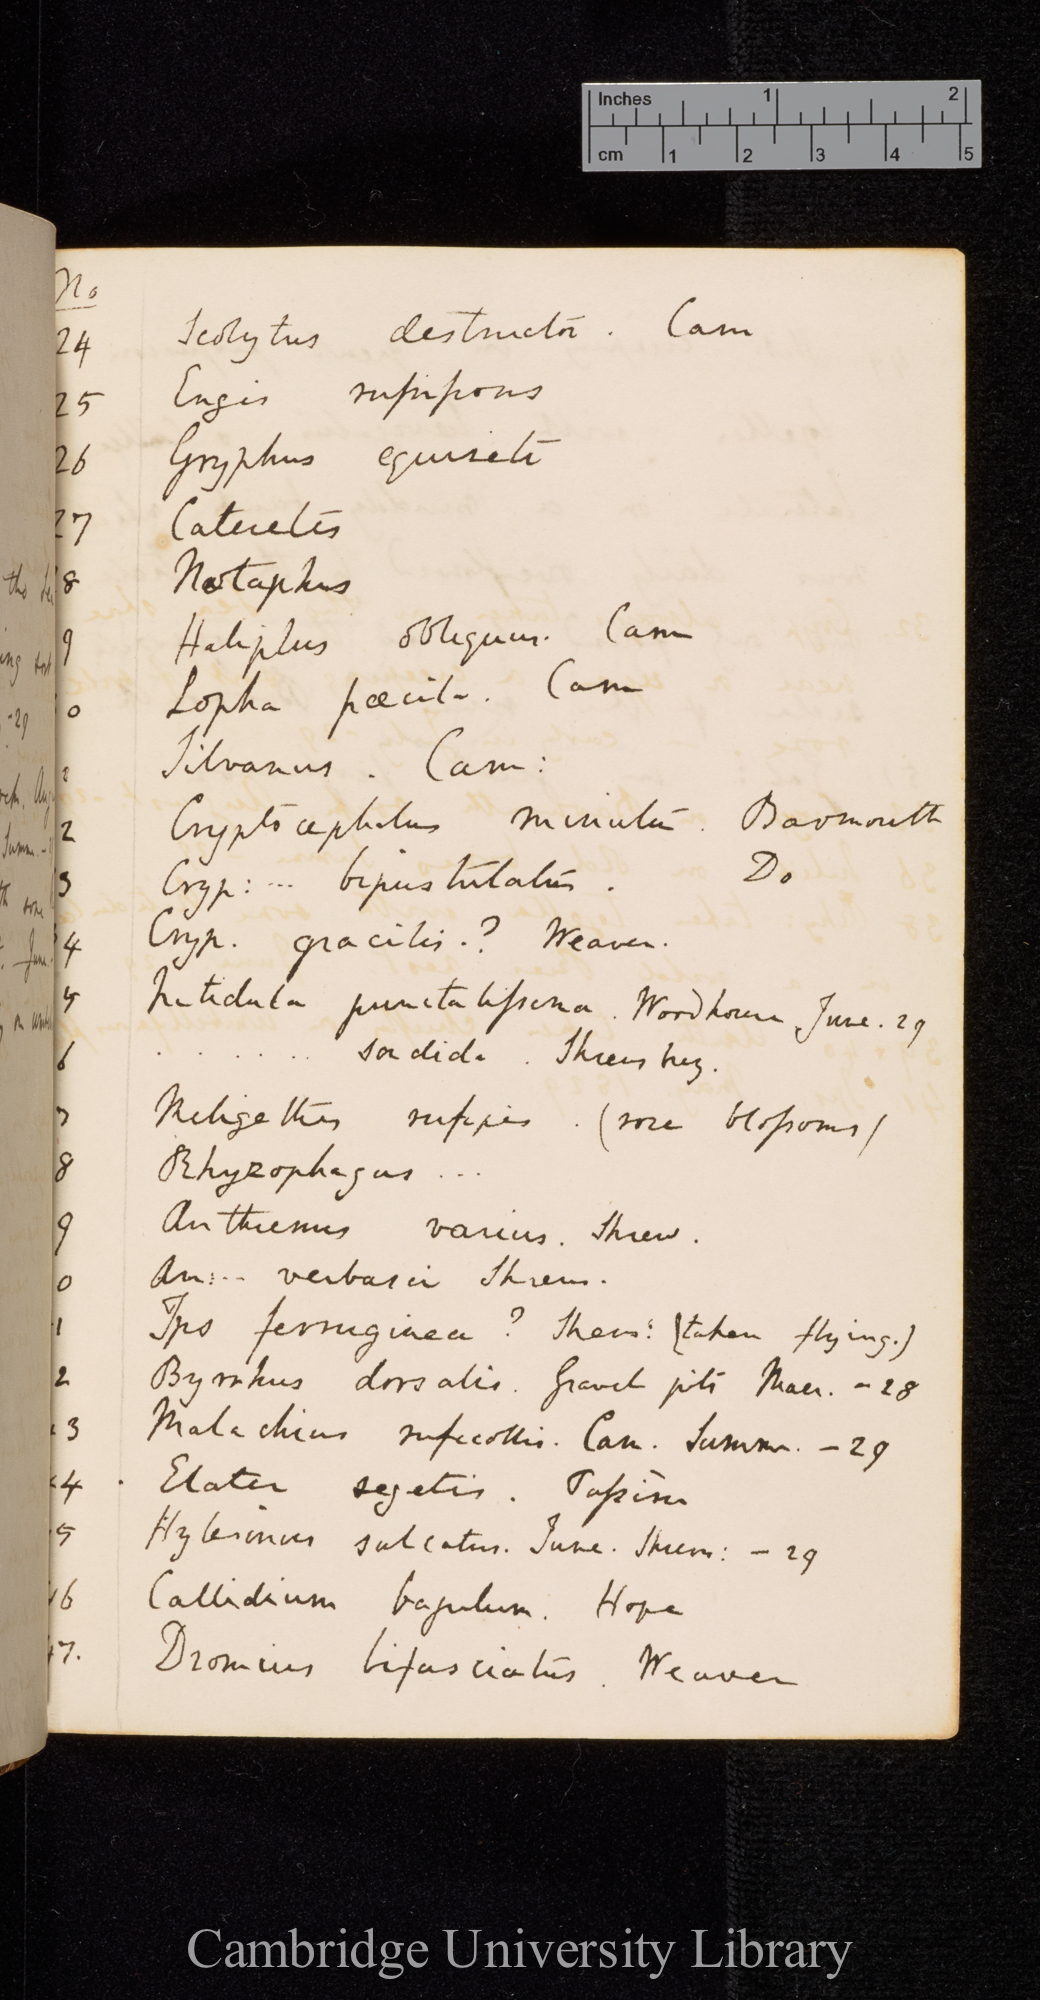 Inches 1 2
cm 1 2 3 4 5
No
24 Scolytus destructor. Cam
25 Engis rufifrons
26 Gryphus equiseti
27 Cateretes
8 Notaphus
9 Haliplus obliquus. Cam
0 Lopha pœcila. Cam
Silvanus. Cam:
2 Cryptocephalus minutus. Barmouth
3 Cryp: ... bipustulatus. Do
4 Cryp. gracilis.? Weaver.
5 Nitidula punctatissima. Woodhouse June. 29
6 . . . . . . . sordida. Shrewsbury.
7 Meligethes rufipes. (rose blossoms)
8 Rhyzophagus ...
9 Anthrenus varius. Shrew.
0 An:... verbasci Shrews.
1 Ips ferruginea? Shews: (taken flying.)
2 Byrrhus dorsalis. Gravel pits Maer. - 28
3 Malachius ruficollis. Cam. Summr. - 29
4 Elater segetis. Passim
5 Hylesinus sulcatus. June. Shrews: - 29
46 Callidium bajulum. Hope
47. Dromius bifasciatus. Weaver
Cambridge University Library